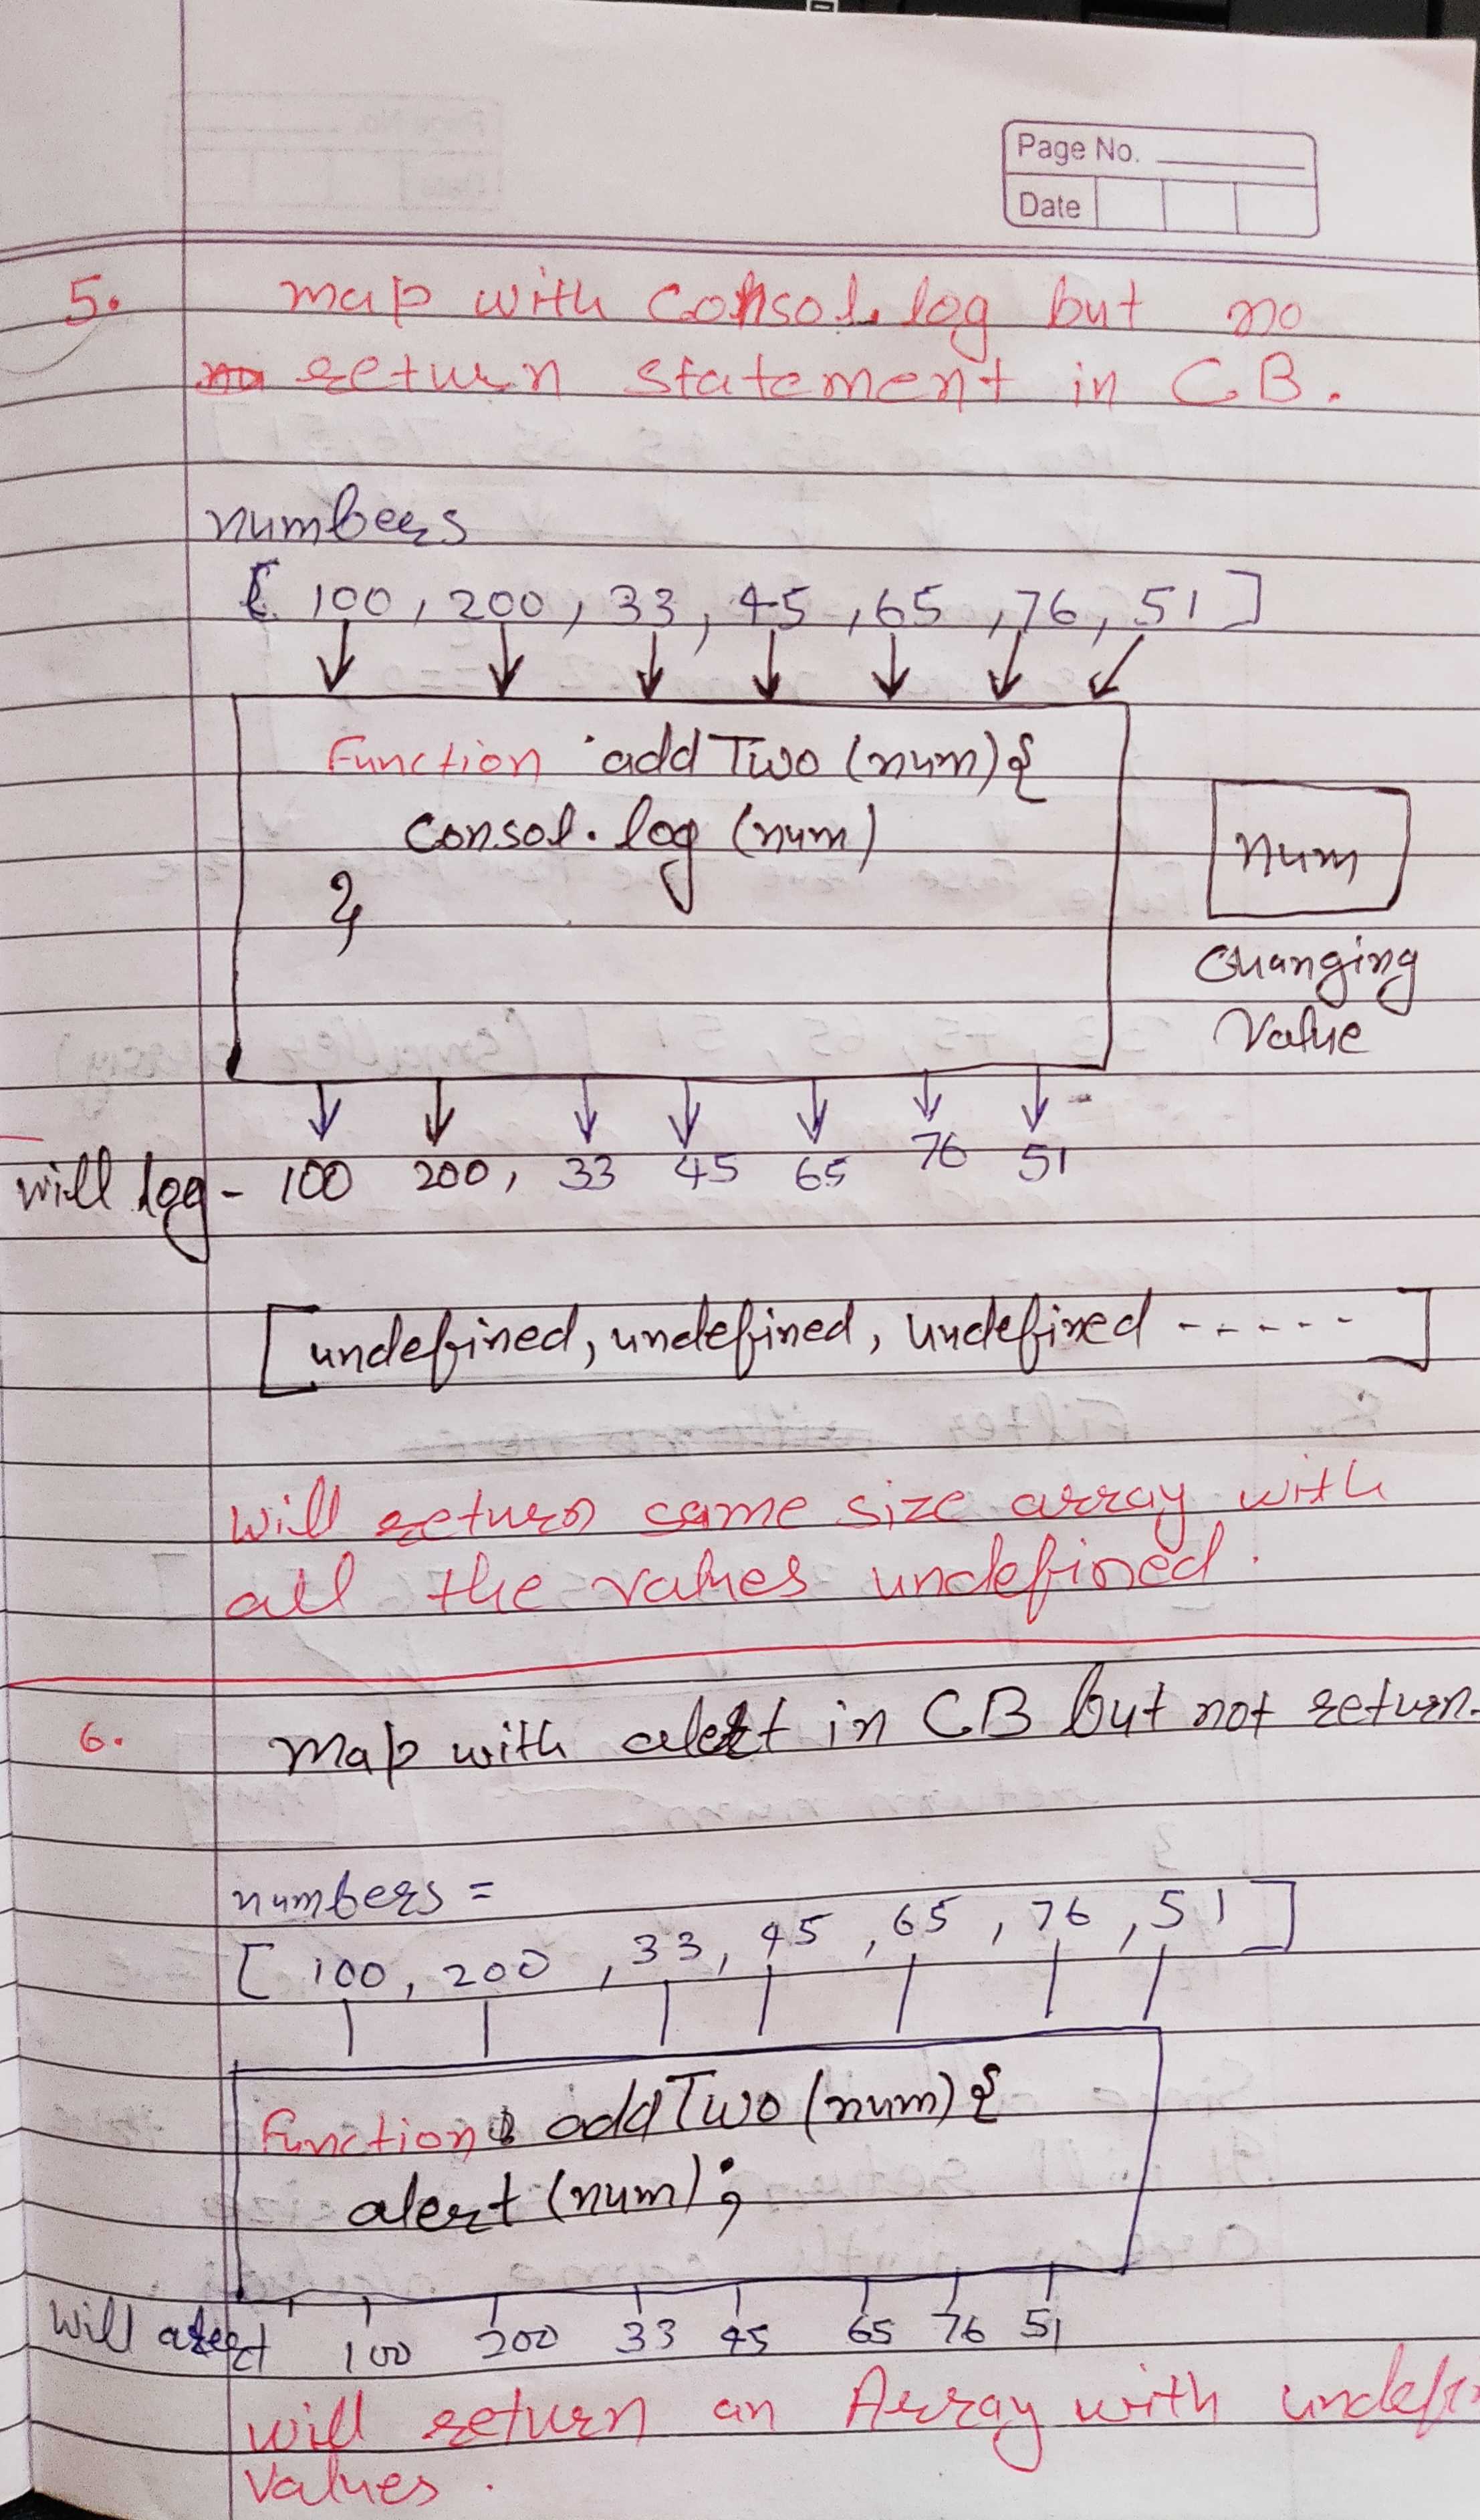 Page No.
Date
5. map with Consol.log but no
return statement in CB.
numbers
[ 100, 200, 33, 45, 65, 76, 51 ]
Function addTwo (num) {
Consol.log (num)
}
num
Changing
Value
will log - 100 200, 33 45 65 76 51
[undefined, undefined, undefined -----]
will return same size array with
all the values undefined.
6. Map with alert in CB but not return.
numbers =
[ 100, 200, 33, 45, 65, 76, 51 ]
Function addTwo (num) {
alert (num);
will alert 100 200 33 45 65 76 51
will return an Array with undefi
values.